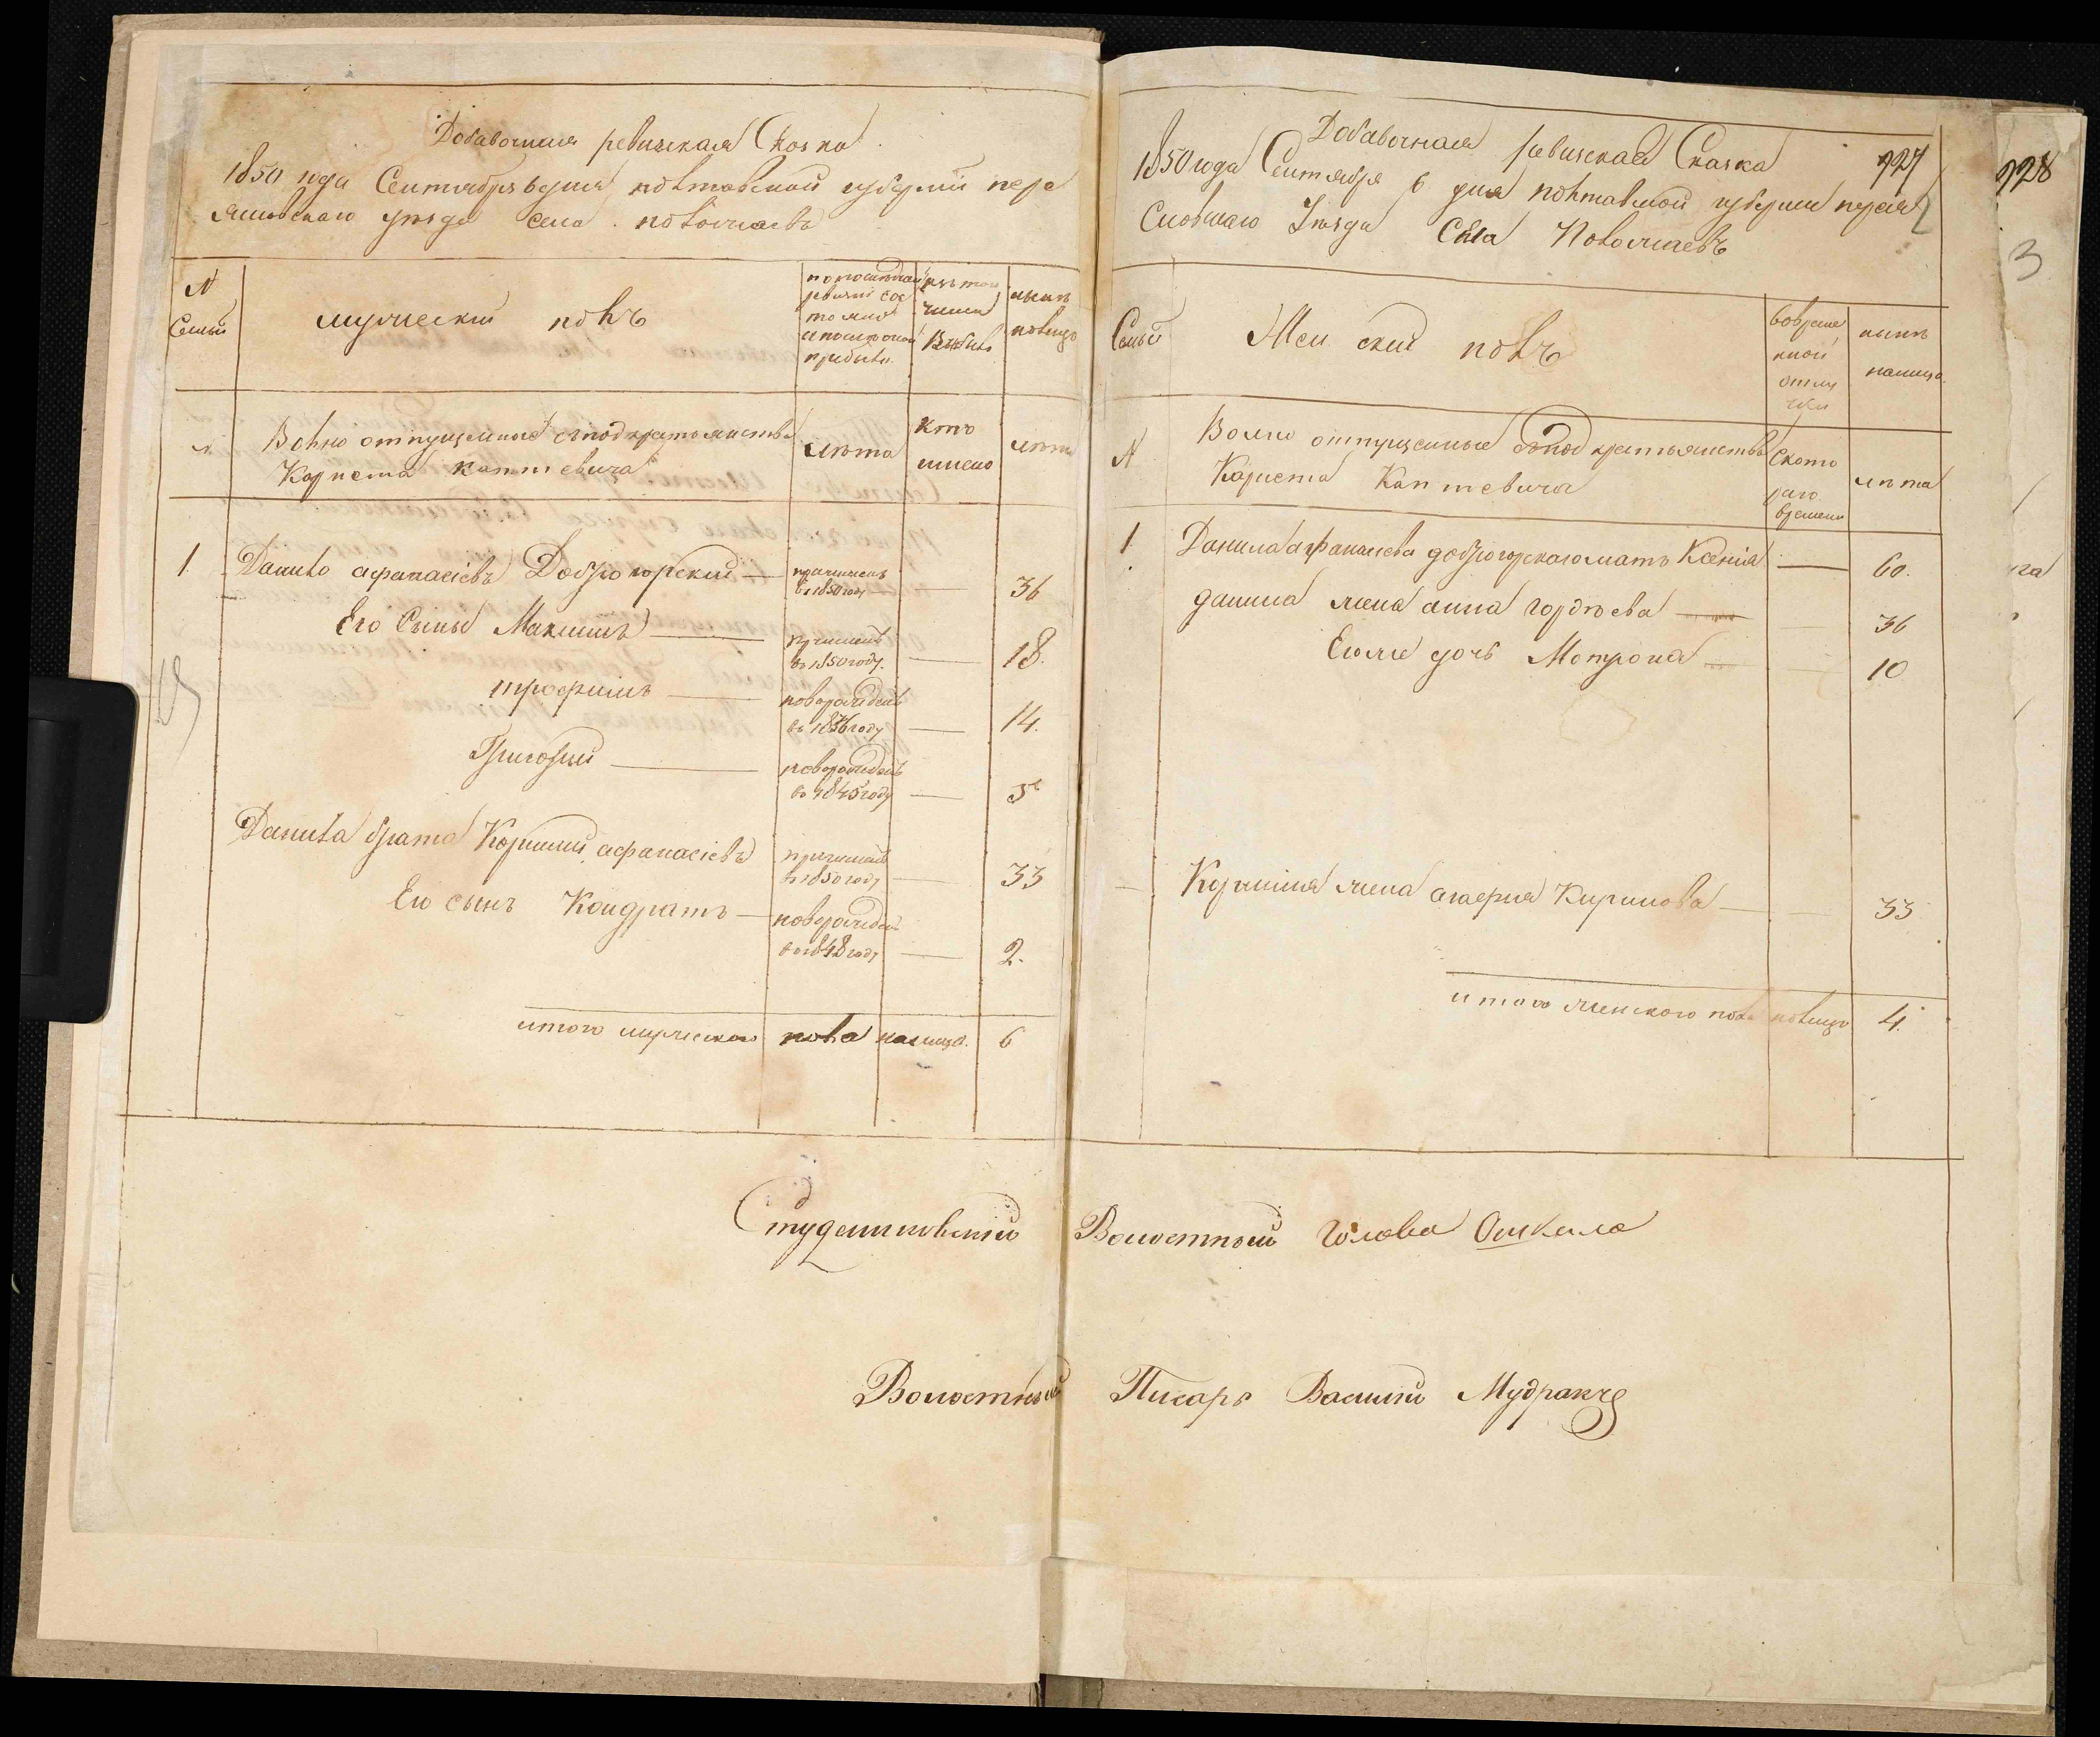 Добавочная ревизская Сказка
1850 года Сентября 6 дня полтавской губернии пере
яшовскаго уезда села поволчаевъ
N
Семьи
мужеский полъ
по последней
ревизии сос
тояло
и после оной
прибыло
изъ того
числа
Выбыло
ныне
налицо
Вольно отпущенные с под крестьянства
Корнета каптевича
лета
кто
имено
лета
1. Данило афанасіевъ Доброгорский — причисленъ
в 1850 году — 36
Его Сыны Максимъ — причисленъ
во 1850 году. — 18.
трофимъ — новорожденъ
во 1836 году — 14.
Григорий — новорожденъ
во 1845 году — 5
Данила брата Корнилий афанасіевъ причисленъ
в 1850 году — 33
Его сынъ Кондратъ — новорожденъ
во 1848 году — 2.
итого мужескаго пола налицо. 6
Добавочная ревизская Сказка 927
1850 года Сентября 6 дня полтавской губернии перея
словскаго Уезда Села Поволчаевъ
Семьи
Женский полъ
вовреме
нной
отлу
чки
ныне
налицо
N
Вольно отпущенные с под крестьянства
Корнета Каптевича
С кото
раго
времени
лета
1 Данила афанасиева доброгорскаго мать Ксенія — 60.
данила жена анна гордеева — 36
Егоже дочь Мотрона — 10
Корнилия жена агафия Киримова — 33
итого женского пола налицо 4.
Студениковский Волостный Голова Ошкало
Волостный Писарь Василий Мудракъ
928
3